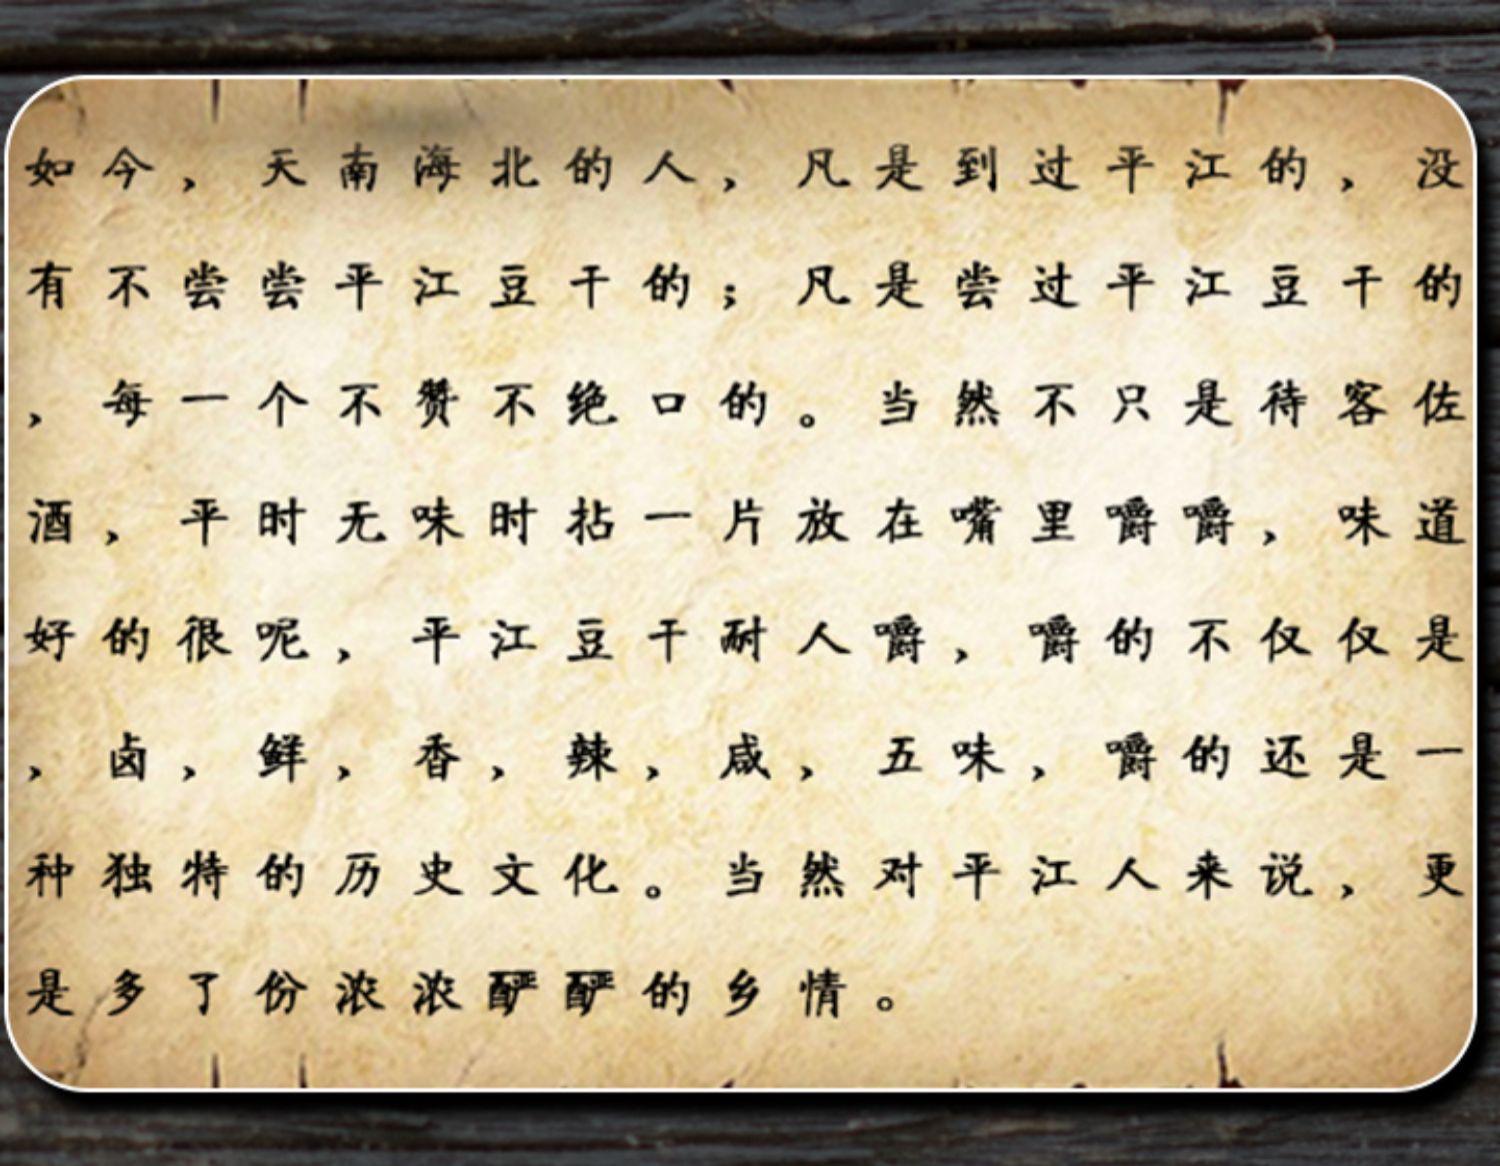 如今，天南海北的人，凡是到过平江的，没
有不尝尝平江豆干的；凡是尝过平江豆干的
，每一个不赞不绝口的。当然不只是待客佐
酒，平时无味时拈一片放在嘴里嚼嚼，味道
好的很呢，平江豆干耐人嚼，嚼的不仅仅是
，卤，鲜，香，辣，咸，五味，嚼的还是一
种独特的历史文化。当然对平江人来说，更
是多了份浓浓酽酽的乡情。